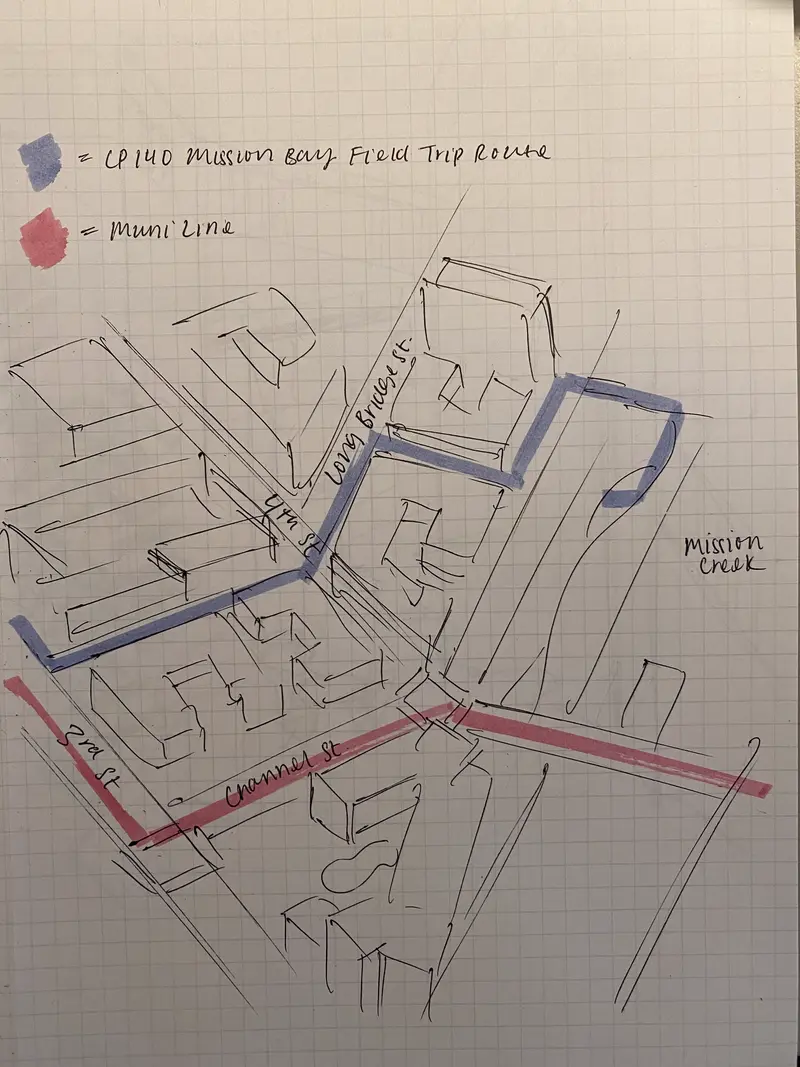 = CP140 Mission Bay Field Trip Route
= Muni Line
Long Bridge St.
4th St
Mission
Creek
3rd St
Channel St.